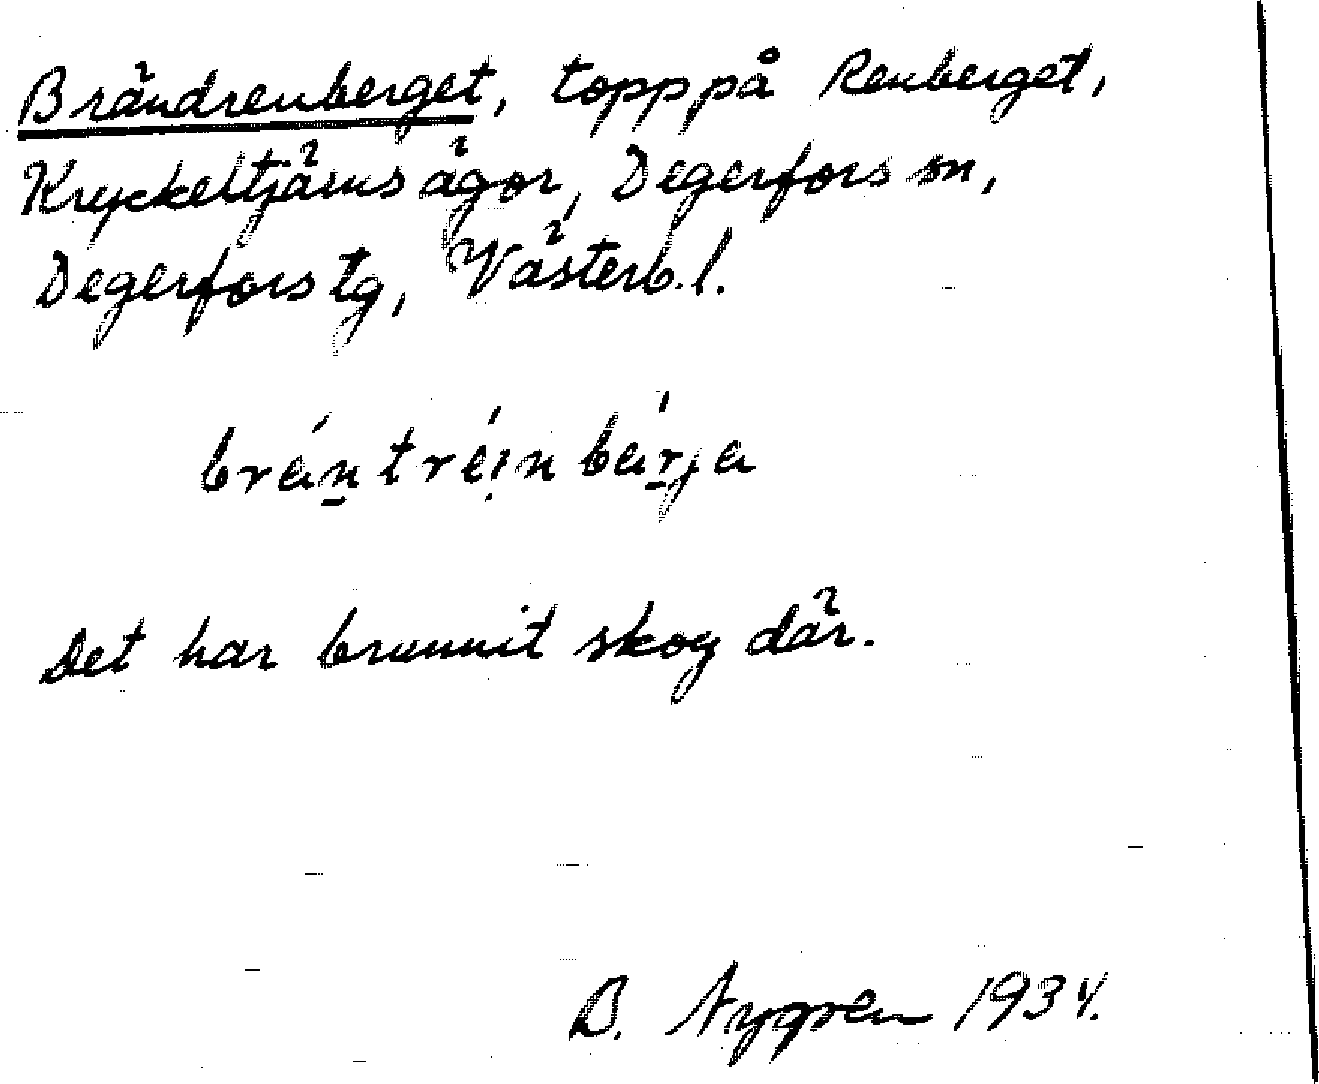 Brändrenberget, topp på Renberget,
Kryckeltjärns ägor, Degerfors sn,
Degerfors tg, Västerb. l.
brántréinbárja
Det har brunnit skog där.
B. Nygren 1934.